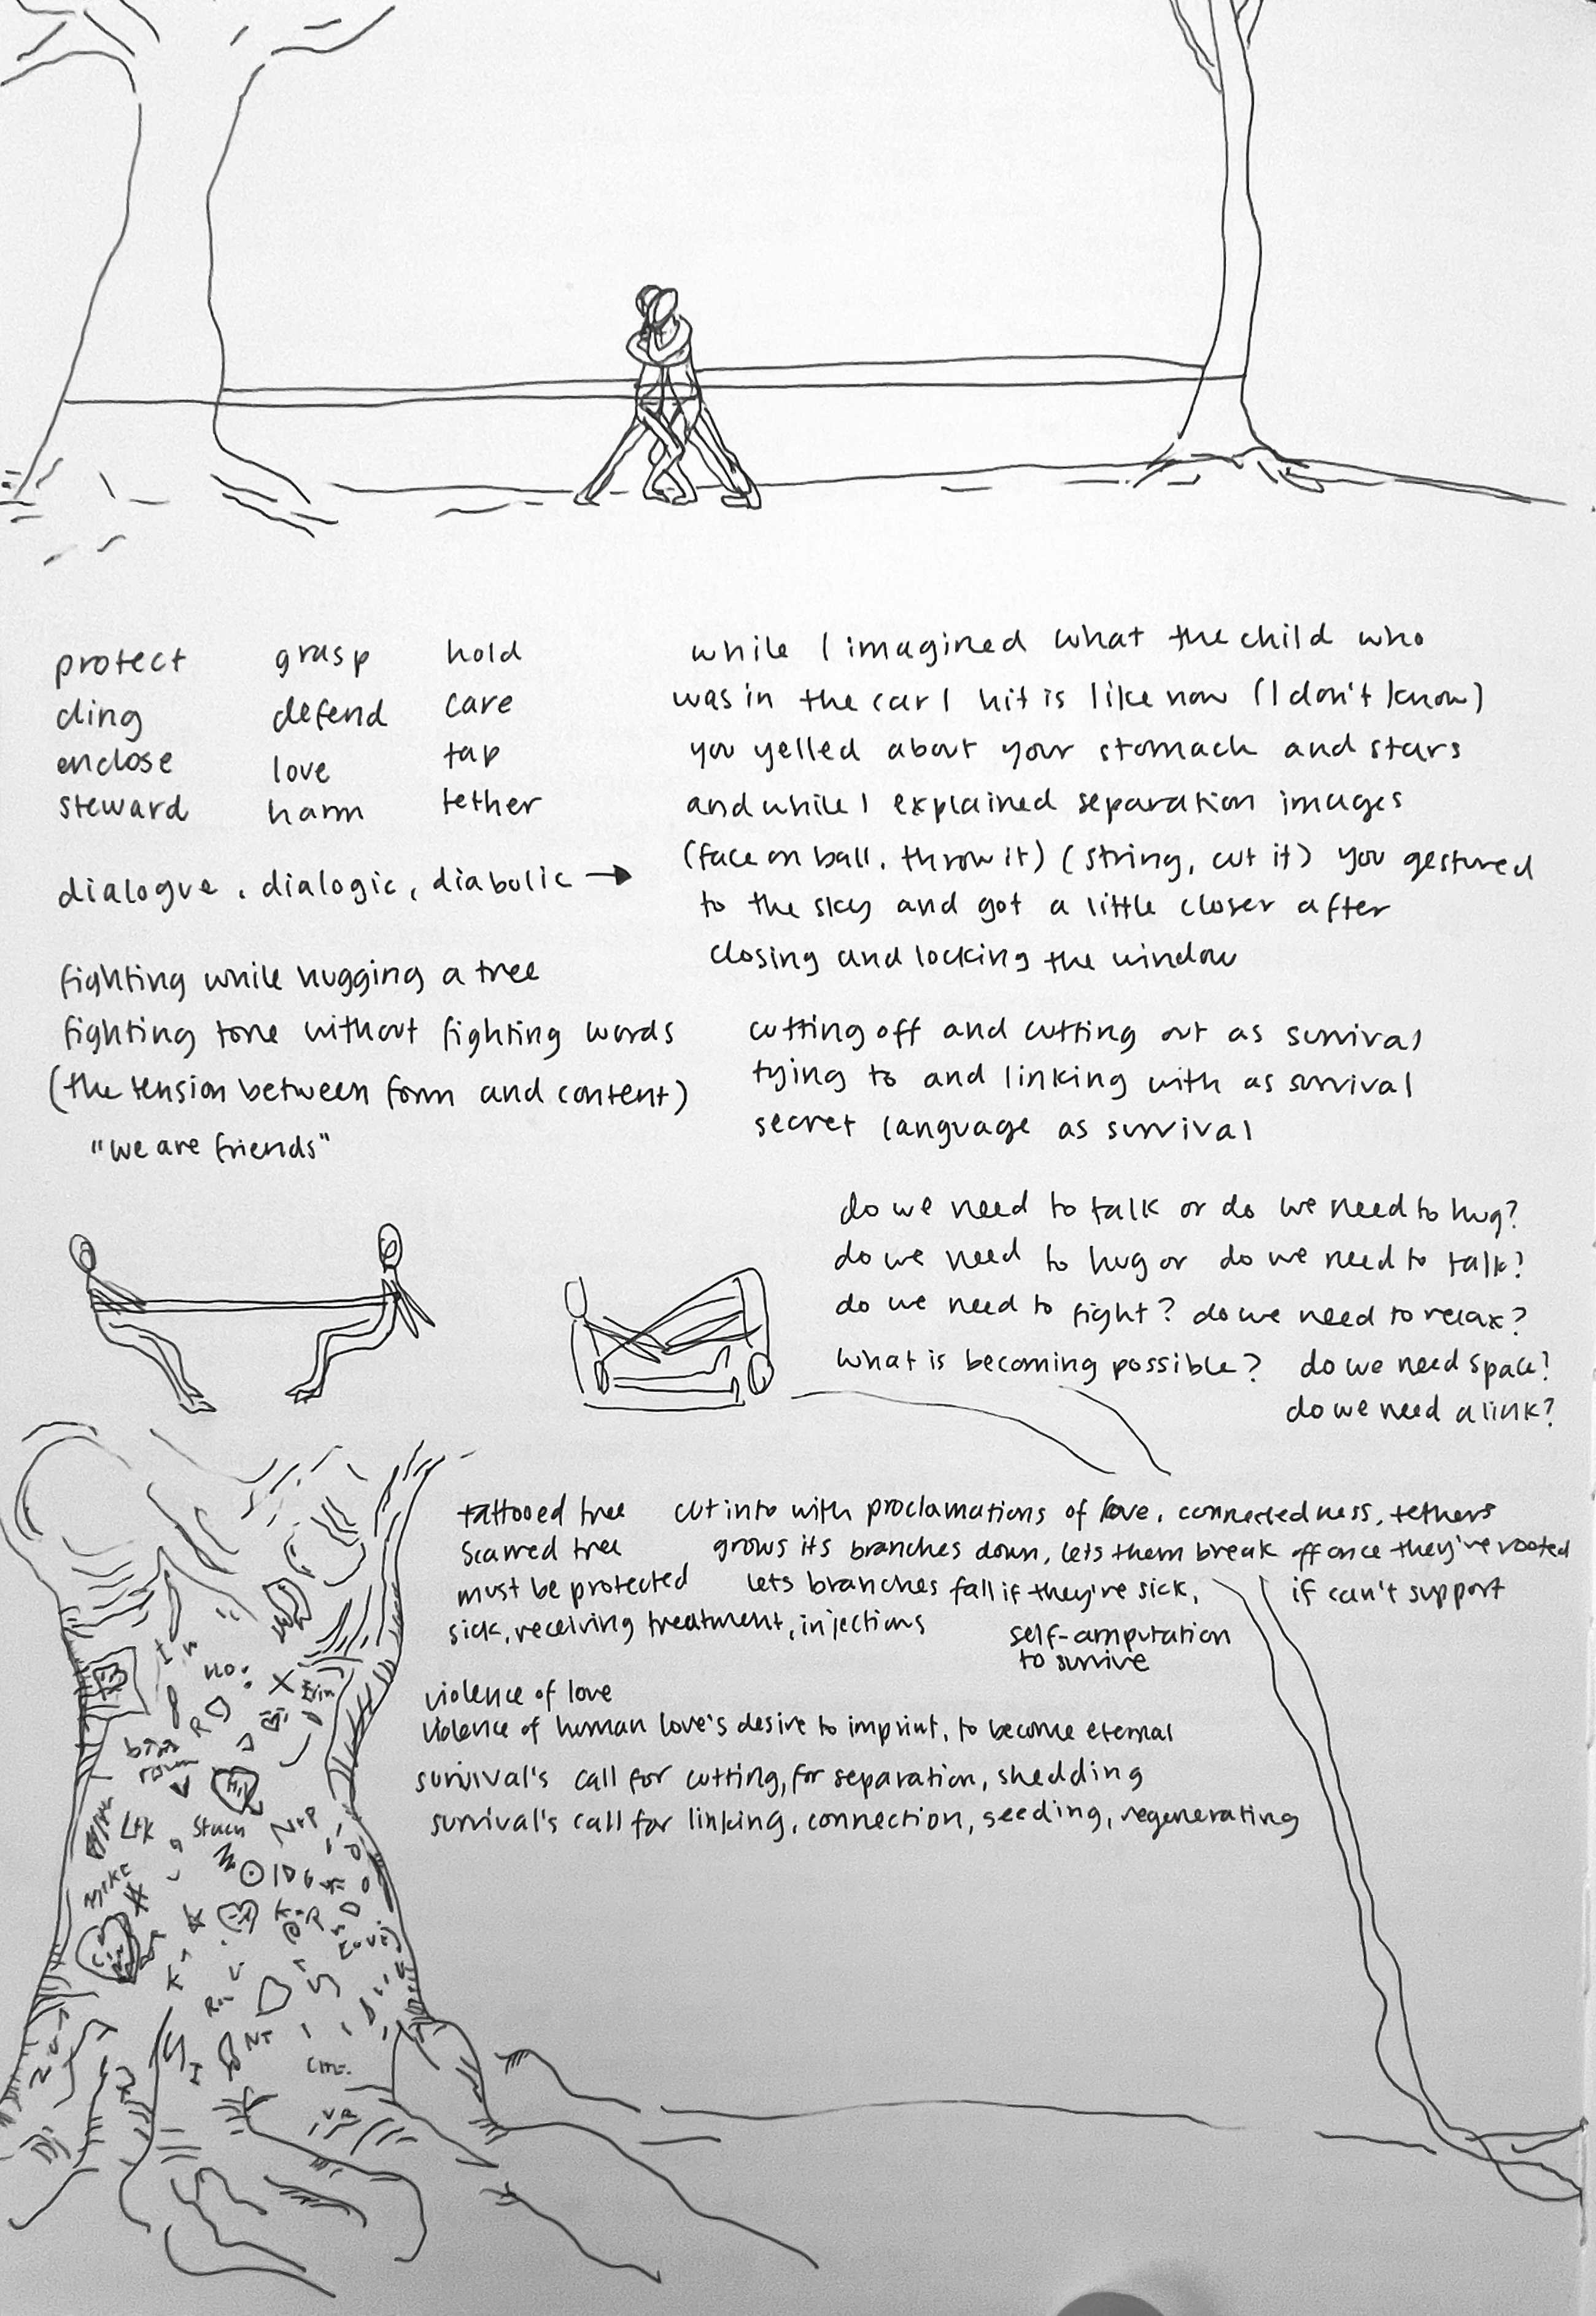 protect grasp hold
cling defend care
enclose love tap
steward harm tether
dialogue, dialogic, diabolic →
fighting while hugging a tree
fighting tone without fighting words
(the tension between form and content)
"we are friends"
while I imagined what the child who
was in the car I hit is like now (I don't know)
you yelled about your stomach and stars
and while I explained separation images
(face on ball, throw it) (string, cut it) you gestured
to the sky and got a little closer after
closing and locking the window
cutting off and cutting out as survival
tying to and linking with as survival
secret language as survival
do we need to talk or do we need to hug?
do we need to hug or do we need to talk?
do we need to fight? do we need to relax?
What is becoming possible? do we need space?
do we need a link?
tattooed tree cut into with proclamations of love, connectedness, tethers
scarred tree grows its branches down, lets them break off once they've rooted
must be protected lets branches fall if they're sick, if can't support
sick, receiving treatment, injections self-amputation
to survive
violence of love
violence of human love's desire to imprint, to become eternal
survival's call for cutting, for separation, shedding
survival's call for linking, connection, seeding, regenerating
no.
X Erin
R
LtK Stacy N+P
MIKE
K
NT